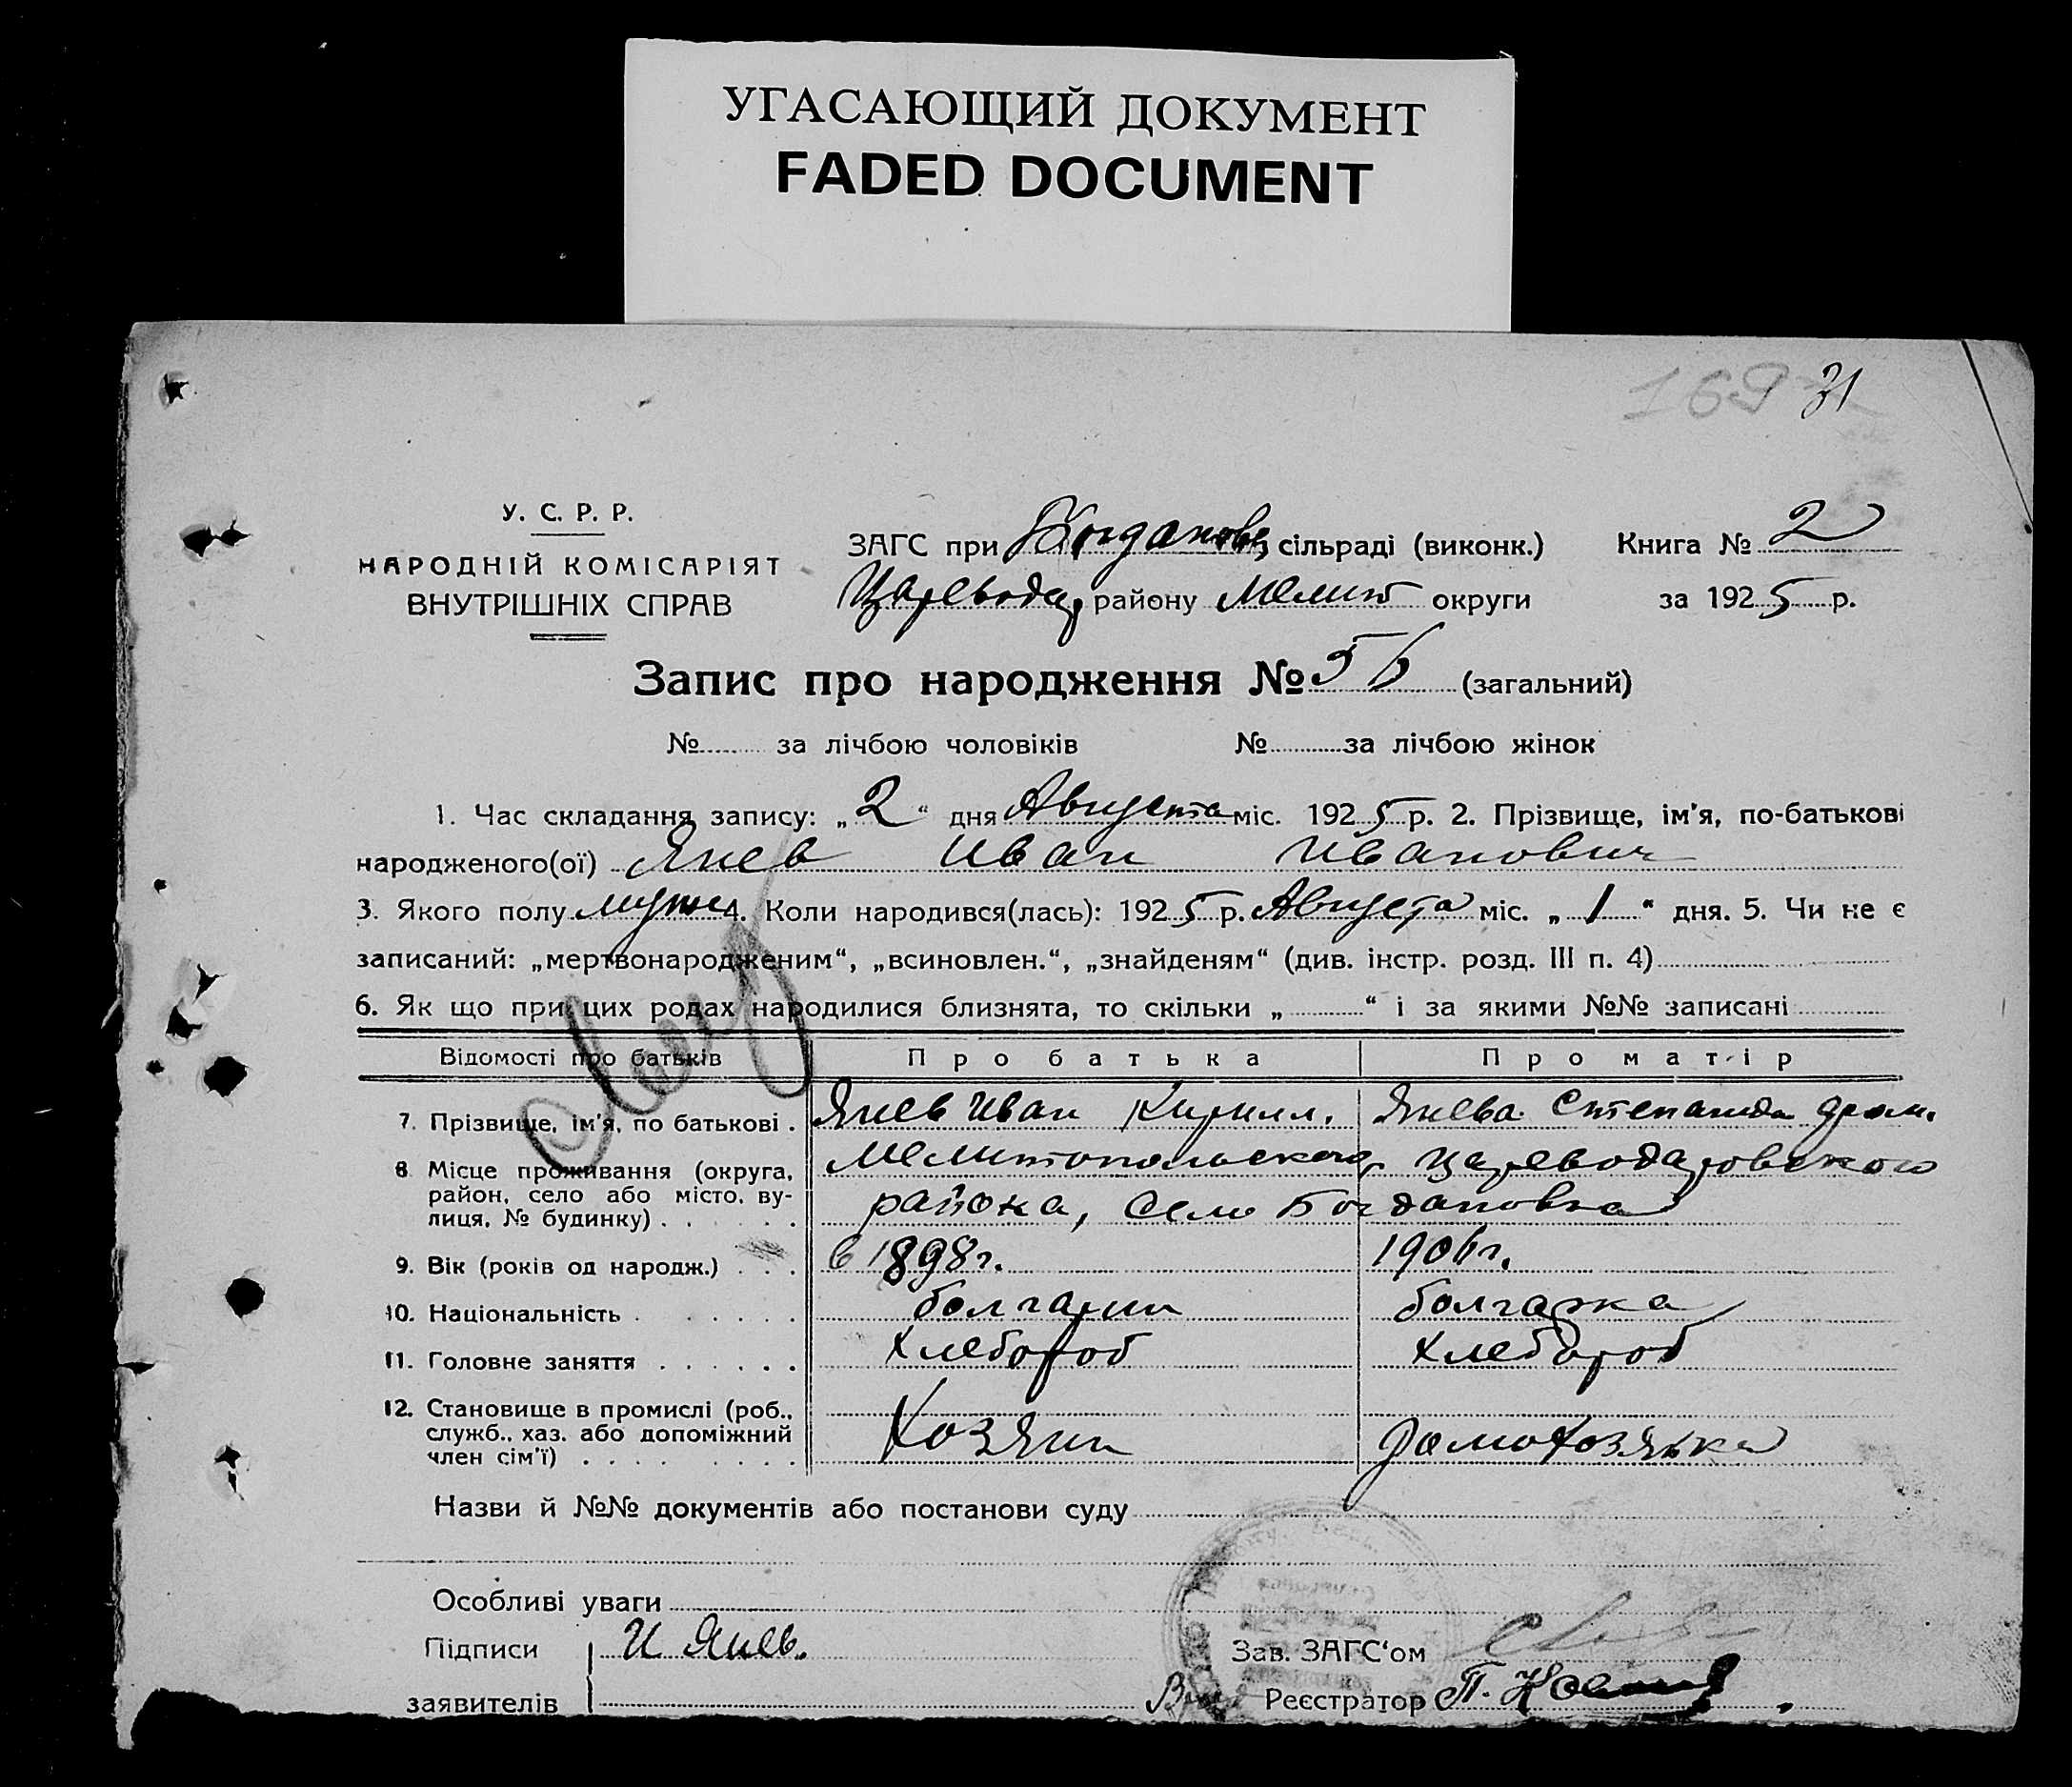 УГАСАЮЩИЙ ДОКУМЕНТ
FADED DOCUMENT
169 31
У. С. Р. Р.
НАРОДНІЙ КОМІСАРІЯТ
ВНУТРІШНІХ СПРАВ
ЗАГС при Богданов сільраді (виконк.) Книга № 2
Цареводар району Мелит округи за 1925 р.
Запис про народження № 56 (загальний)
№ за лічбою чоловіків № за лічбою жінок
1. Час складання запису: „2“ дня Августа міс. 1925 р. 2. Прізвище, ім'я, по-батькові
народженого(ої) Янев Иван Иванович
3. Якого полу муж 4. Коли народився(лась): 1925 р. Августа міс. „1“ дня. 5. Чи не є
записаний: „мертвонародженим“, „всиновлен.“, „знайденям“ (див. інстр. розд. III п. 4)
6. Як що при цих родах народилися близнята, то скільки „ “ і за якими №№ записані
Відомості про батьків Про батька Про матір
7. Прізвище, ім'я, по батькові . Янев Иван Кирилл. Янева Степанида
8 Місце проживання (округа, район, село або місто, вулиця, № будинку) Мелитопольского Цареводаровского
района, село Богдановка
9. Вік (років од народж.) . . . в 1898г. 1906г.
10. Національність болгарин болгарка
11. Головне заняття хлебороб хлебороб
12. Становище в промислі (роб., служб., хаз. або допоміжний член сім'ї) Хозяин Домохозяйка
Назви й №№ документів або постанови суду
Особливі уваги
Підписи И Янев. Зав. ЗАГС'ом
заявителів Реєстратор П.